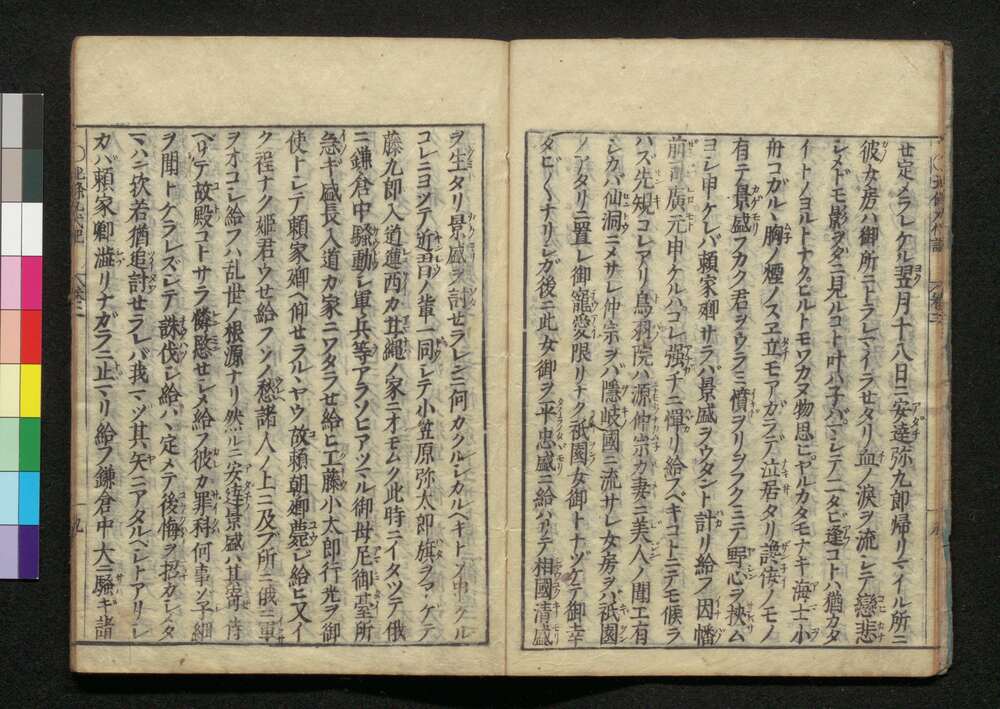 せ定メラレケル翌月十八日ニ安達弥九郎帰リマイル所ニ
彼女房ハ御所ニトラレマイラせタリ血ノ涙ヲ流レテ戀悲
レメドモ影ヲダニ見ルコト叶ハ子バマレテ二タビ逢コトハ猶カタ
イトノヨルトナクヒルトモワカヌ物思ヒヤルカタモナキ海士小
舟コガルヽ胸ノ煙ノスヱ立モアガラデ泣居タリ讒侫ノモノ
有テ景盛フカク君ヲウラミ憤ヲリヲフクミテ野心ヲ挾ム
ヨレ申ケレバ頼家卿サラバ景盛ヲウタント計リ給フ因幡
前司廣元申ケルハコレ强チニ憚リ給スベキコトニテモ候ラ
ハズ先規コレアリ鳥羽院ハ源仲宗カ妻ニ美人ノ聞エ有
レカバ仙洞ニメサレ仲宗ヲバ隠岐國ニ流サレ女房ヲバ祇園
ノアタリニ置レ御寵愛限リナク祇園女御トナヅケテ御幸
タビ〱ナリレガ後ニ此女御ヲ平忠盛ニ給ハリテ相國清盛
ヲ生タリ景盛ヲ討せラレンニ何カクルレカルベキトソ申ケル
コレニヨツテ近習ノ輩一同レテ小笠原弥太郎旗ヲアゲテ
藤九郎入道蓮西カ甘縄ノ家ニオモムク此時ニイタツテ俄
ニ鎌倉中騒動レ軍兵等アラソヒアツマル御母尼御臺所
急ギ盛長入道カ家ニワタラせ給ヒ工藤小太郎行光ヲ御
使トレテ頼家卿ヘ仰せラルヽヤウ故頼朝卿薨ジ給ヒ又イ
ク程ナク姫君ウせ給フソノ愁諸人ノ上ニ及ブ所ニ俄ニ軍
ヲオコレ給フハ乱世ノ根源ナリ然ルニ安達景盛ハ其寄侍
ベリテ故殿コトサラ憐愍せレメ給フ彼カ罪科何事ソ子細
ヲ聞トケラレズレテ誅伐レ給ハヽ定メテ後悔ヲ招カレタ
マハン欤若猶追討せラレバ我マツ其矢ニアタルベレトアリレ
カハ頼家卿澁リナガラニ止マリ給フ鎌倉中大ニ騒ギ諸